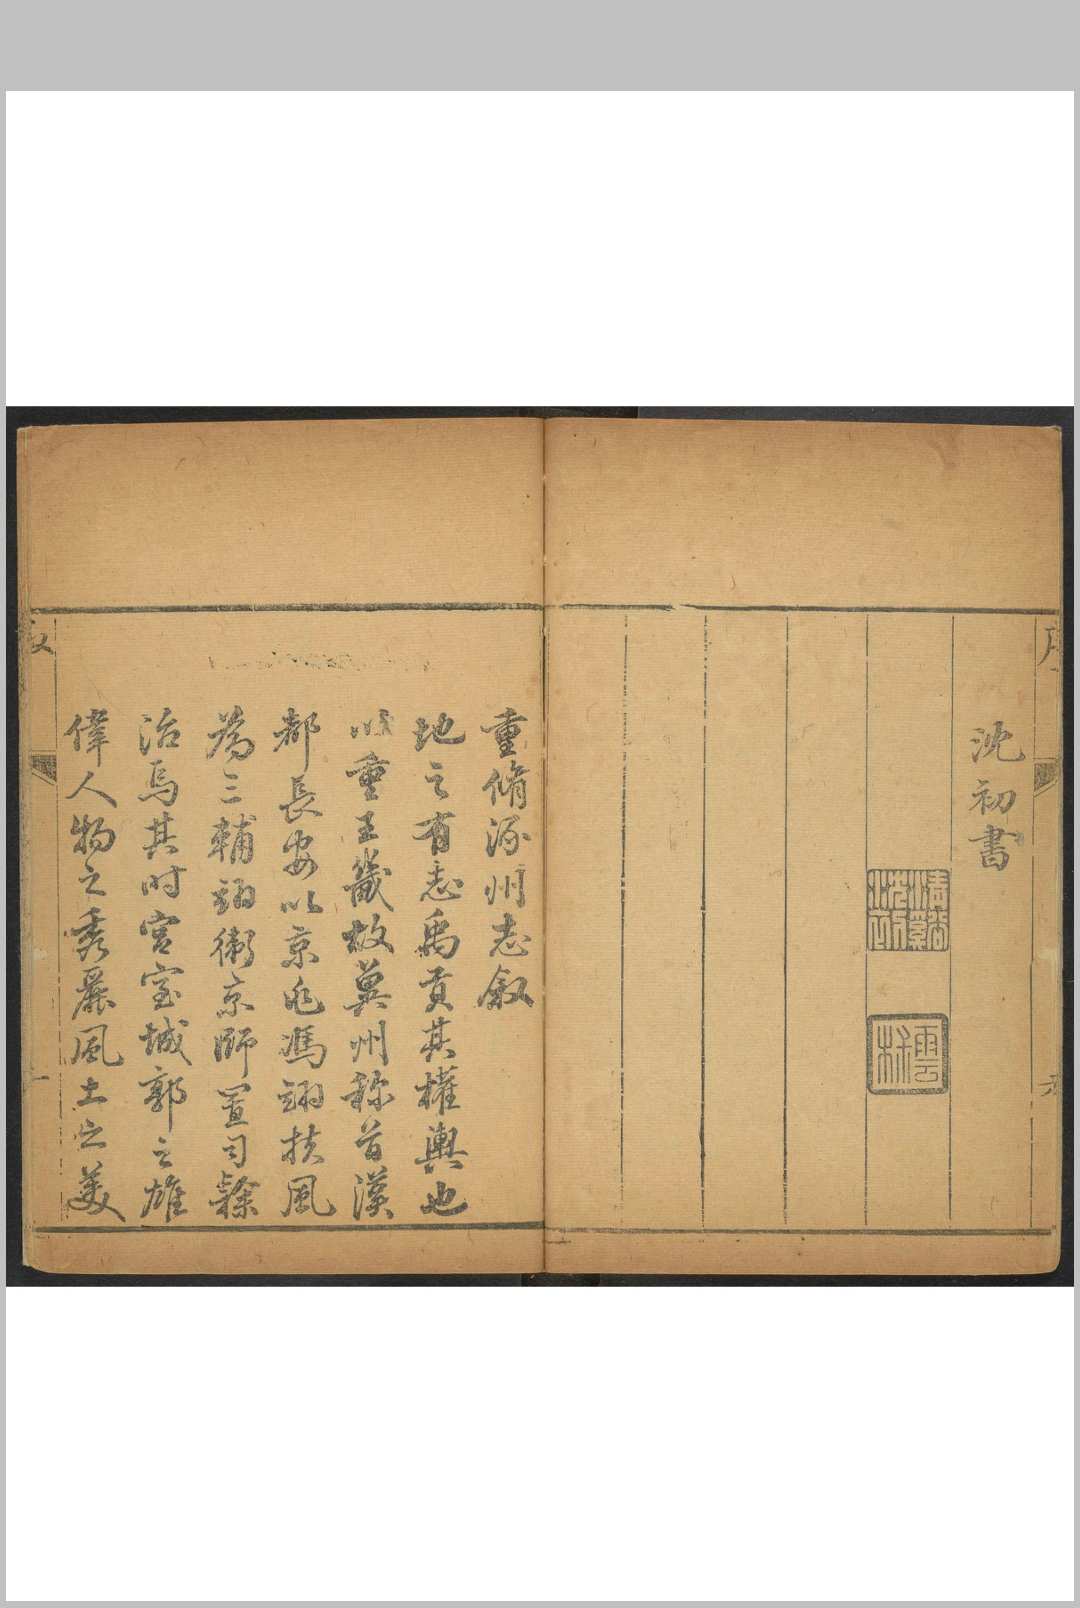 沈初書
雲椒
重脩涿州志敘
地之有志禹貢其權輿也
以重王畿故冀州稱首漢
都長安以京兆馮翊扶風
為三輔翊衛京師置司隸
治焉其时宮室城郭之雄
偉人物之秀麗風土之美